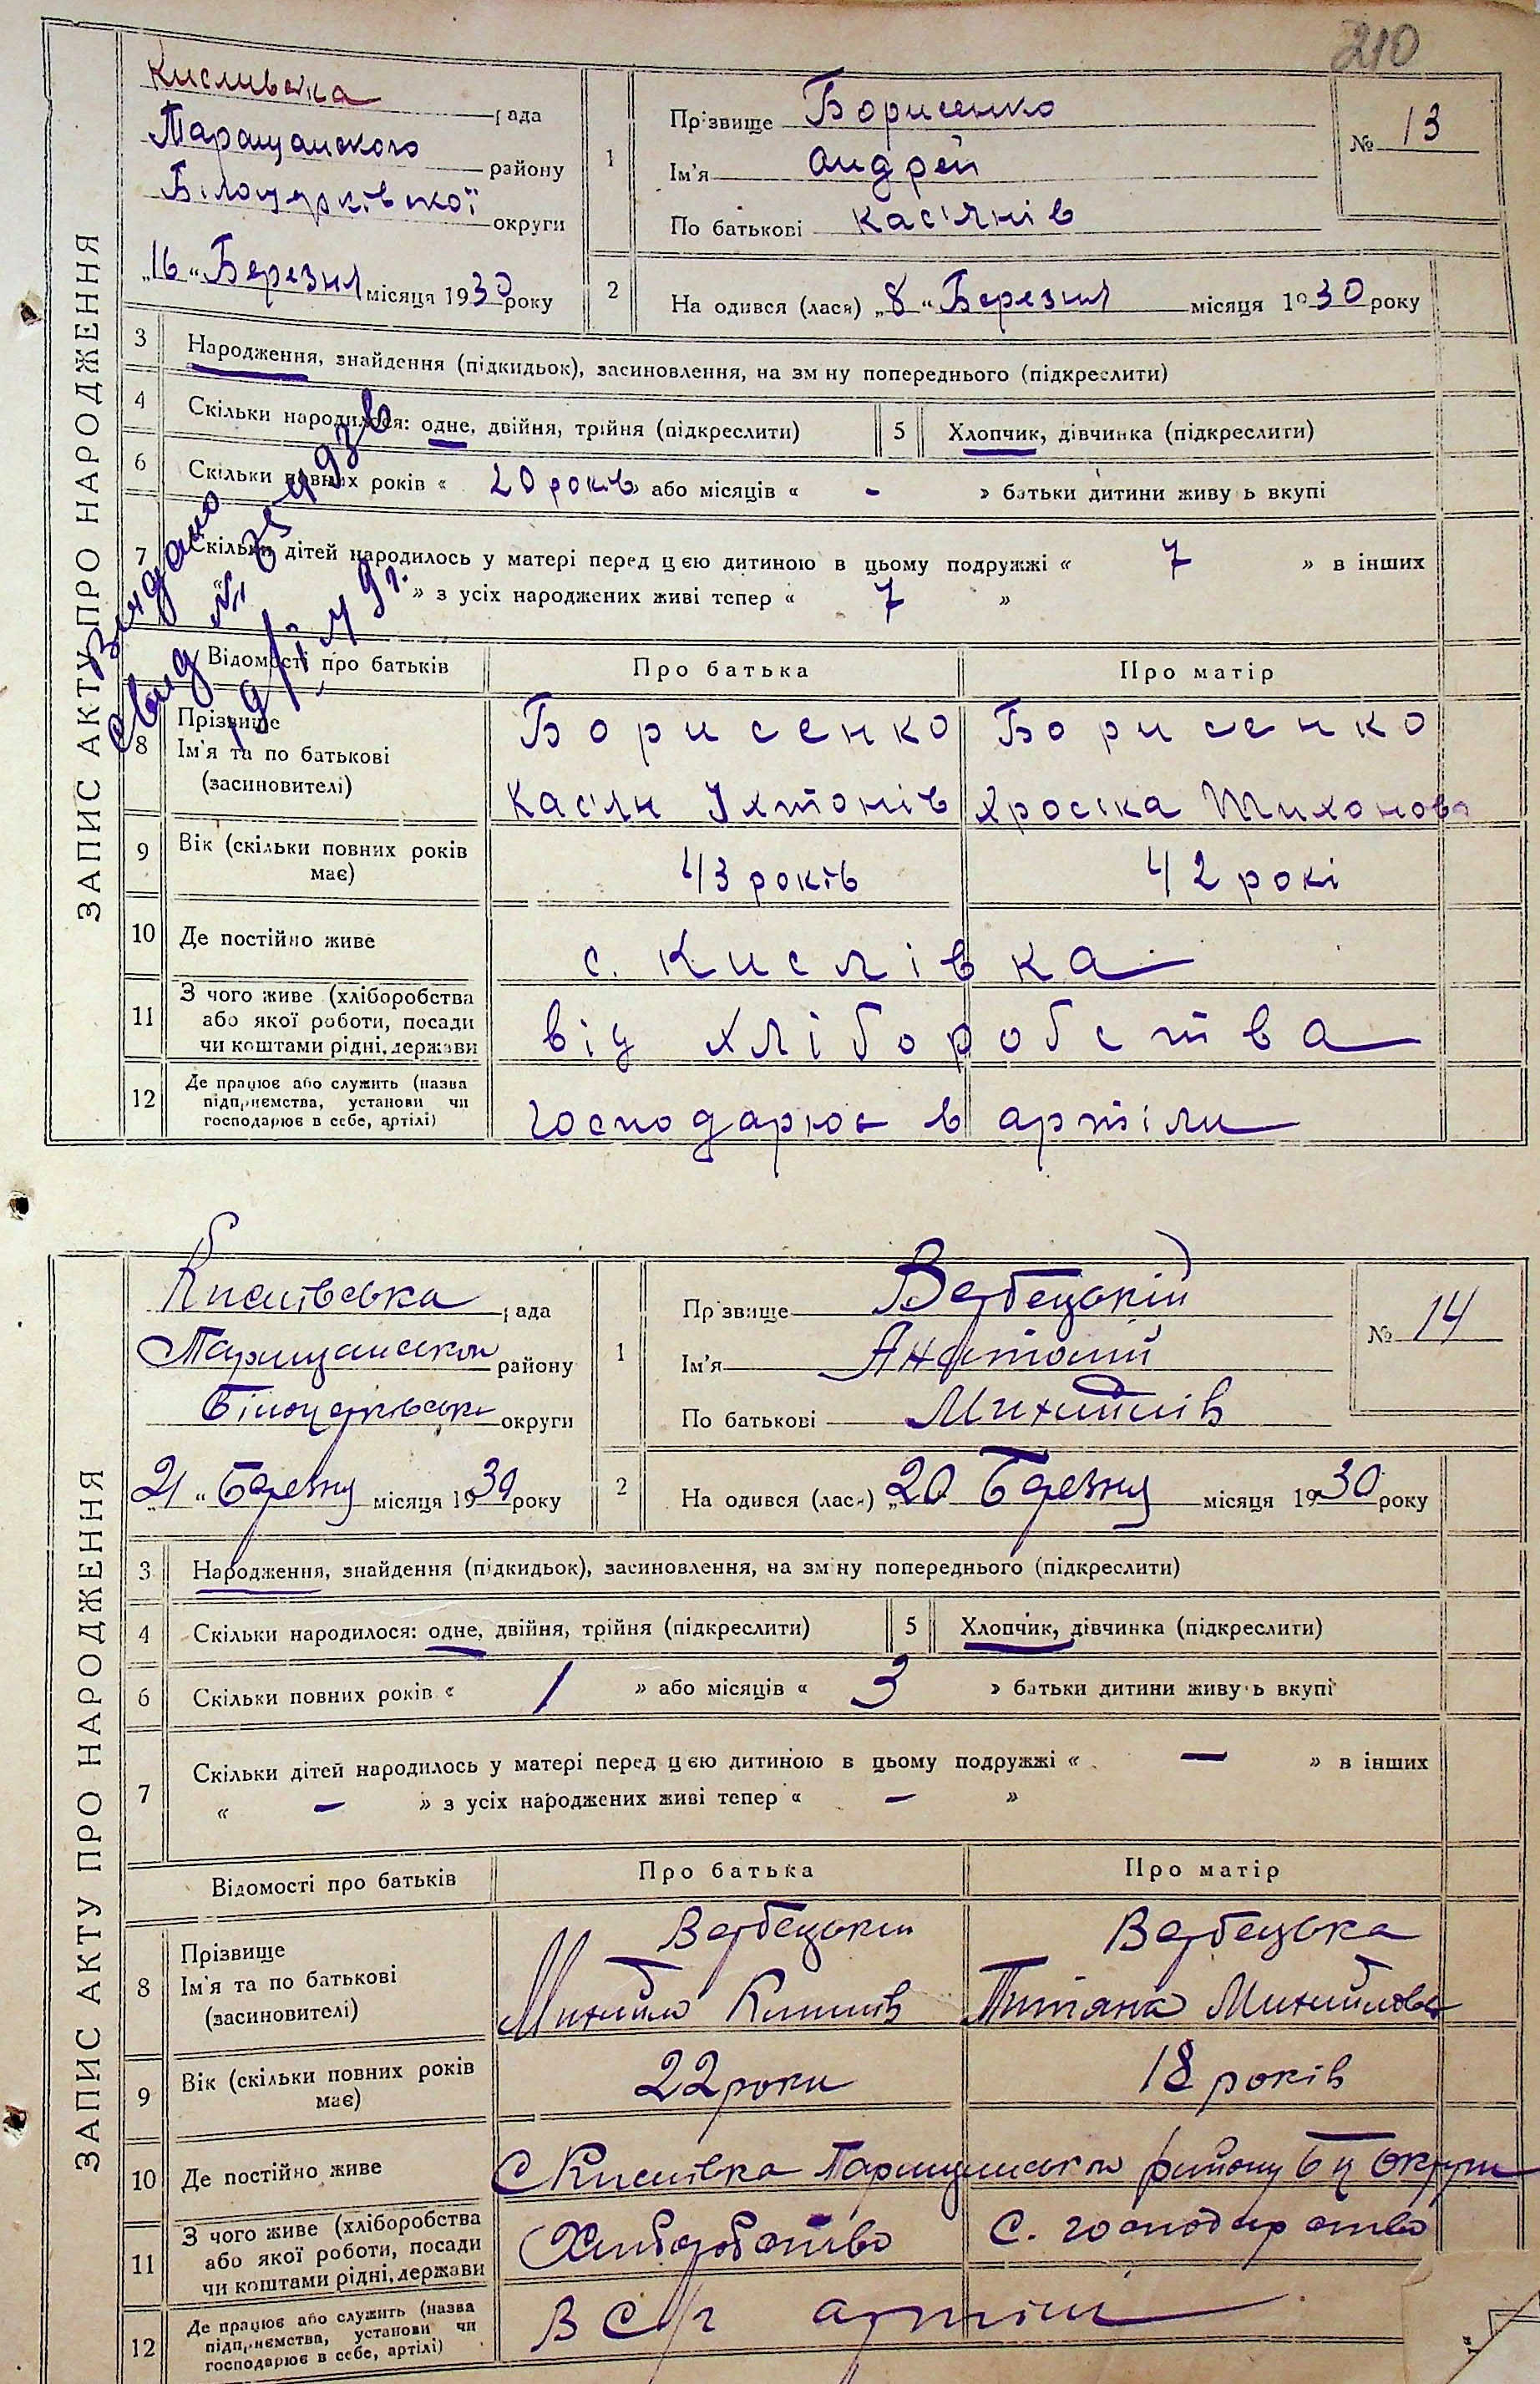 210
ЗАПИС АКТУ ПРО НАРОДЖЕННЯ
Кисливська рада
Таращанского району
Білоцерківської округи
„16“ Березня місяця 1930 року
1
Прізвище Борисенко
Ім'я Андрей
По батькові Касіянів
№ 13
2 На одився (лася) „8“ Березня місяця 1930 року
3 Народження, знайдення (підкидьок), засиновлення, на зм ну попереднього (підкреслити)
4 Скільки народилося: одне, двійня, трійня (підкреслити)
5 Хлопчик, дівчинка (підкреслити)
6 Скільки повних років « 20 років » або місяців « - » батьки дитини живу ь вкупі
7 Скільки дітей народилось у матері перед цією дитиною в цьому подружжі « 7 » в інших
» з усіх народжених живі тепер « 7 »
Видано
Відомості про батьків Про батька Про матір
8 Прізвище
Ім'я та по батькові
(засиновителі)
Борисенко Борисенко
Касіян Тихонова
9 Вік (скільки повних років має) 43 років 42 рокі
10 Де постійно живе с. Кислівка
11 З чого живе (хліборобства
або якої роботи, посади
чи коштами рідні, держави
від хліборобства
12 Де працює або служить (назва
підприємства, установи чи
господарює в себе, артілі)
господарює в артіли
ЗАПИС АКТУ ПРО НАРОДЖЕННЯ
Кислівська рада
Таращанської району
Білоцерківської округи
„21“ Березня місяця 1930 року
1
Прізвище Вербецький
Ім'я Анатолий
По батькові Михайлів
№ 14
2 На одився (лася) „20 Березня місяця 1930 року
3 Народження, знайдення (підкидьок), засиновлення, на зміну попереднього (підкреслити)
4 Скільки народилося: одне, двійня, трійня (підкреслити)
5 Хлопчик, дівчинка (підкреслити)
6 Скільки повних років « 1 » або місяців « 3 » батьки дитини живу ь вкупі
7 Скільки дітей народилось у матері перед цією дитиною в цьому подружжі « — » в інших
« — » з усіх народжених живі тепер « — »
Відомості про батьків Про батька Про матір
8 Прізвище
Ім'я та по батькові
(засиновителі)
Вербецький Вербецька
Михайло Татяна Михайлова
9 Вік (скільки повних років має) 22 роки 18 років
10 Де постійно живе С Кислівка Таращанської району Бц Округи
11 З чого живе (хліборобства
або якої роботи, посади
чи коштами рідні, держави
Хліборобство С. господарство
12 Де працює або служить (назва
підприємства, установи чи
господарює в себе, артілі)
В С/г артілі